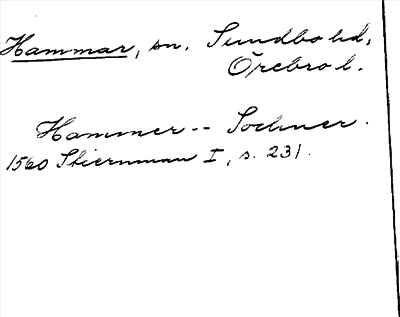 Hammar, sn. Sundbo hd,
Örebro l.
Hammer-- Sochner.
1560 Stiernman I, s. 231.